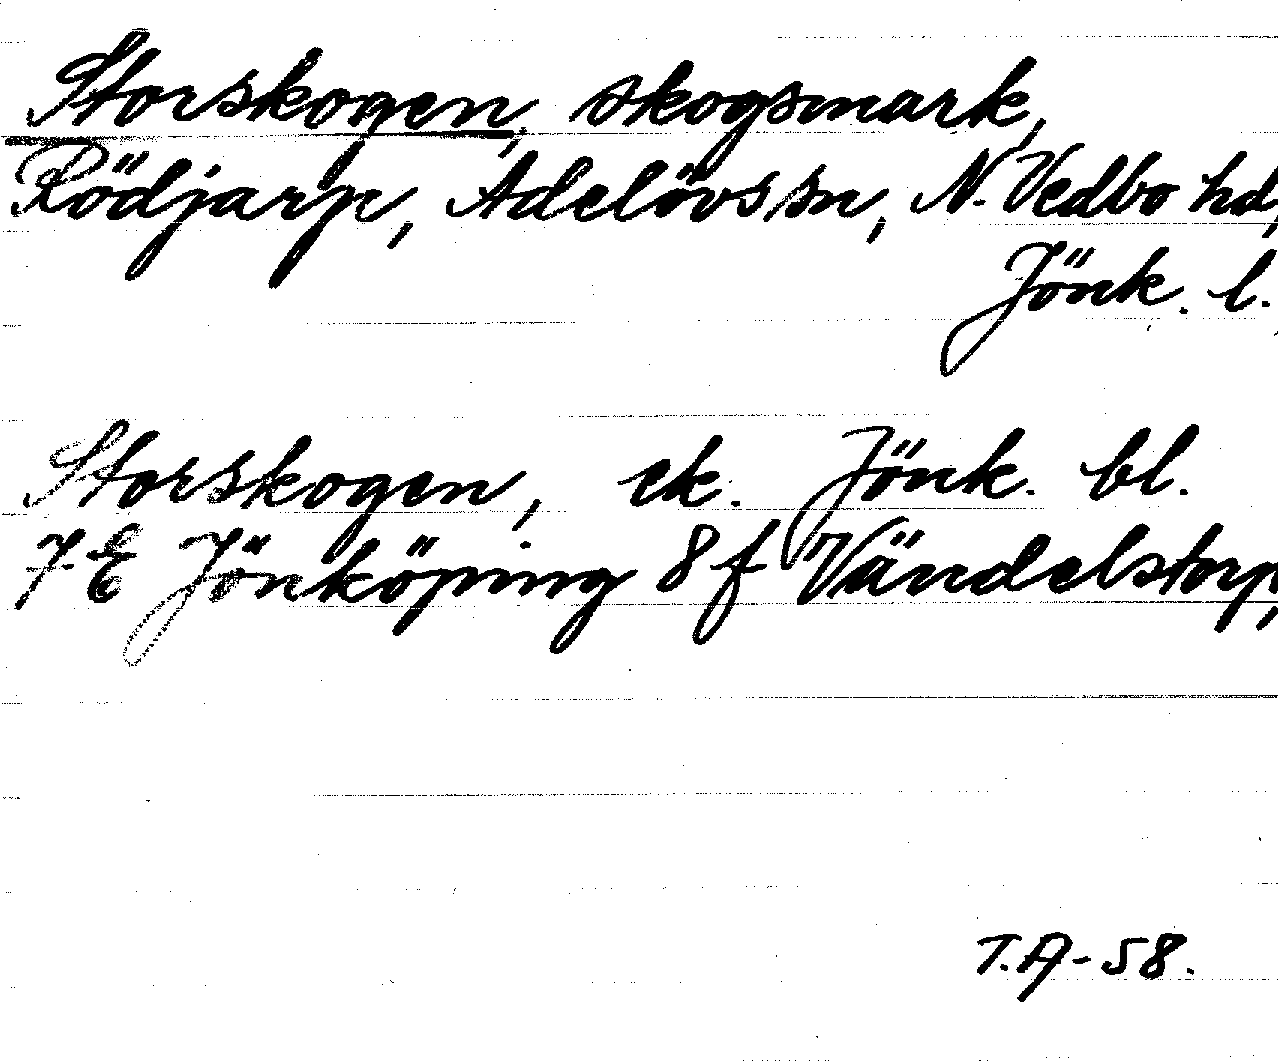 Storskogen, skogsmark,
Rödjarp, Adelövs sn, N. Vedbo hd,
Jönk. l.
Storskogen, ek. Jönk. bl.
7E Jönköping 8f Vändelstorp,
T.A-58.